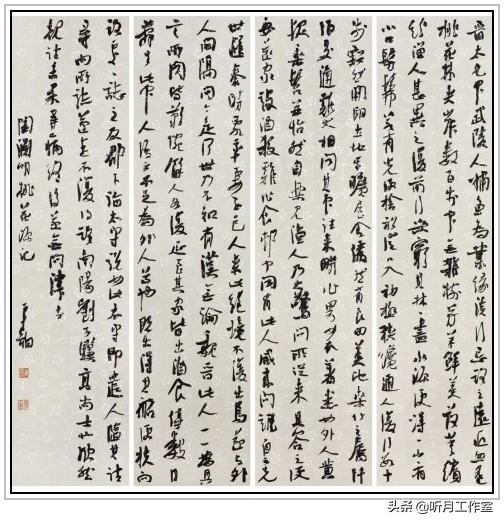 晉太元中武陵人捕魚為業緣溪行忘路之遠近忽逢
桃花林夾岸數百步中無雜樹芳草鮮美落英繽
紛漁人甚異之復前行欲窮其林林盡水源便得一山山有
小口髣髴若有光便捨船從口入初極狹纔通人復行數十
步豁然開朗土地平曠屋舍儼然有良田美池桑竹之屬阡
陌交通雞犬相聞其中往來種作男女衣著悉如外人黃
髮垂髫並怡然自樂見漁人乃大驚問所從來具答之便
要還家設酒殺雞作食村中聞有此人咸來問訊自云先
世避秦時亂率妻子邑人來此絕境不復出焉遂與外
人間隔問今是何世乃不知有漢無論魏晉此人一一為具
言所聞皆歎惋餘人各復延至其家皆出酒食停數日
辭去此中人語云不足為外人道也既出得其船便扶向
路處處誌之及郡下詣太守說如此太守即遣人隨其往
尋向所誌遂迷不復得路南陽劉子驥高尚士也欣然
規往未果尋病終後遂無問津者
陶淵明桃花源記
头条 @听月工作室